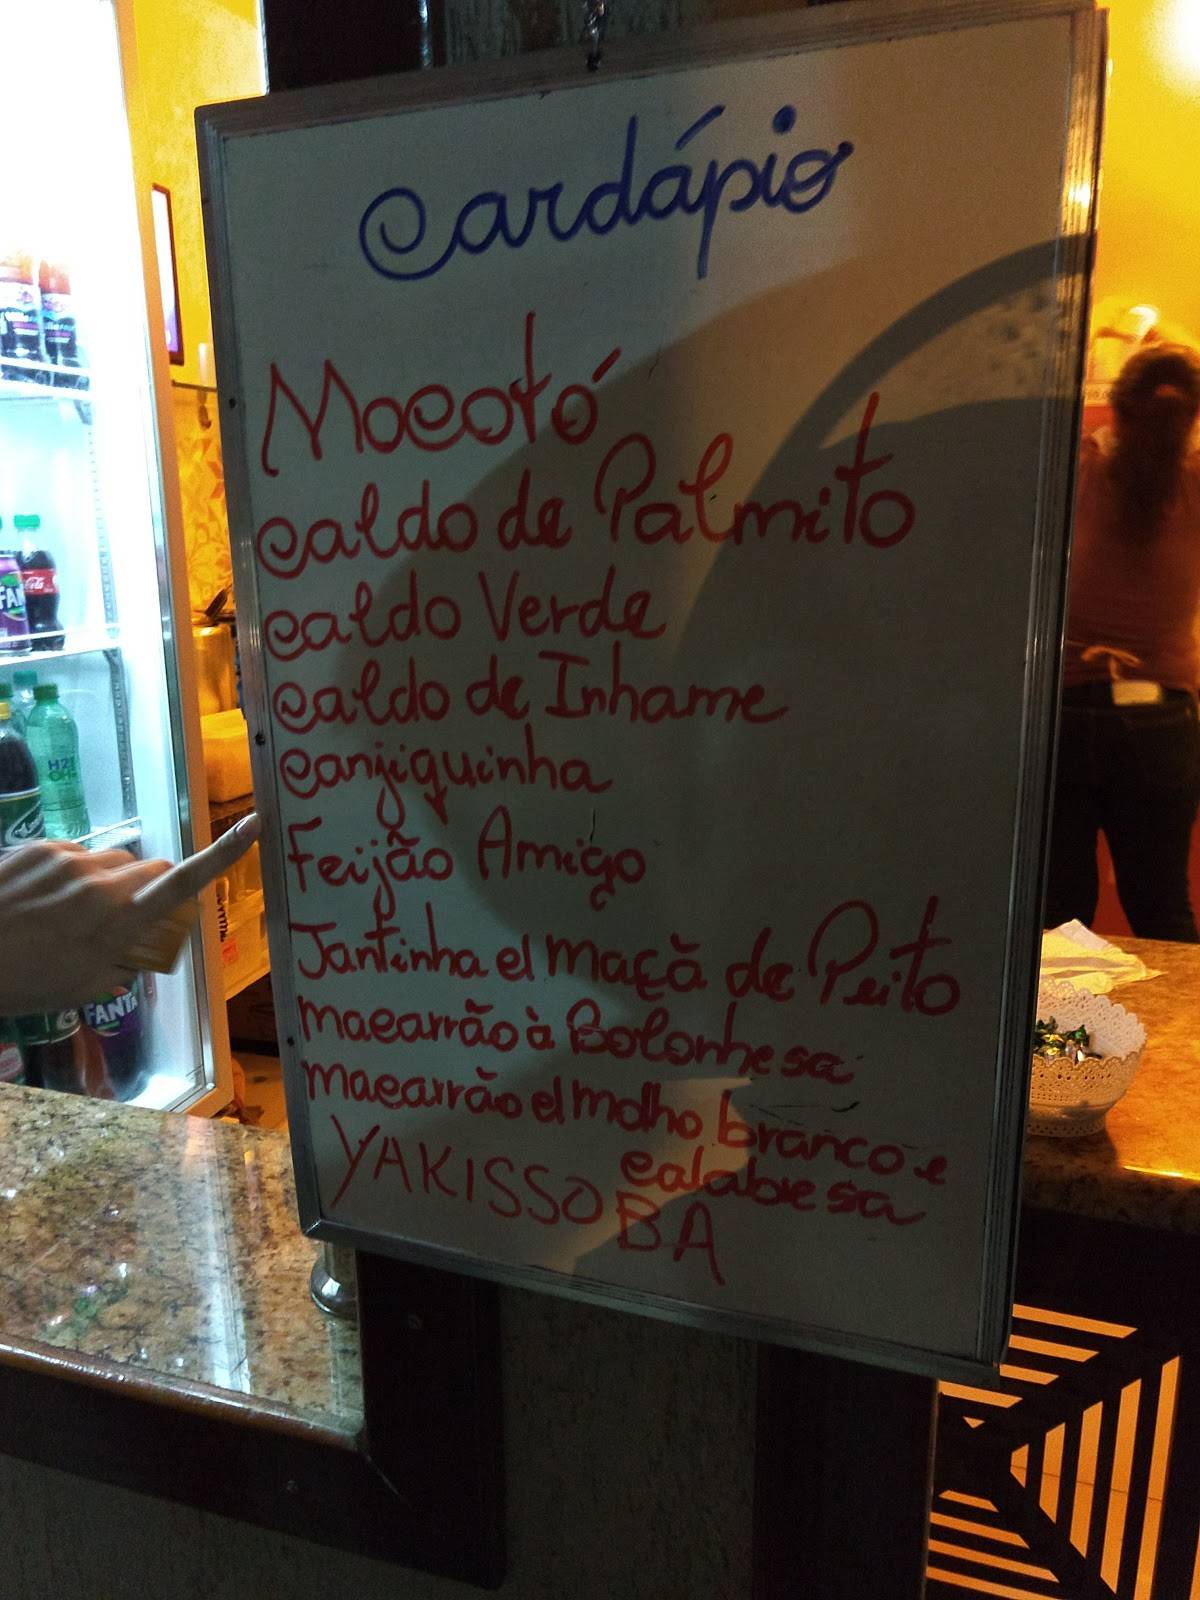 Cardápio
Mocotó
Caldo de Palmito
Caldo Verde
Caldo de Inhame
Canjiquinha
Feijão Amigo
Jantinha c/ maçã de Peito
macarrão à Bolonhesa
macarrão c/ molho branco e
calabresa
YAKISSO
BA
FANTA
H2
OH!